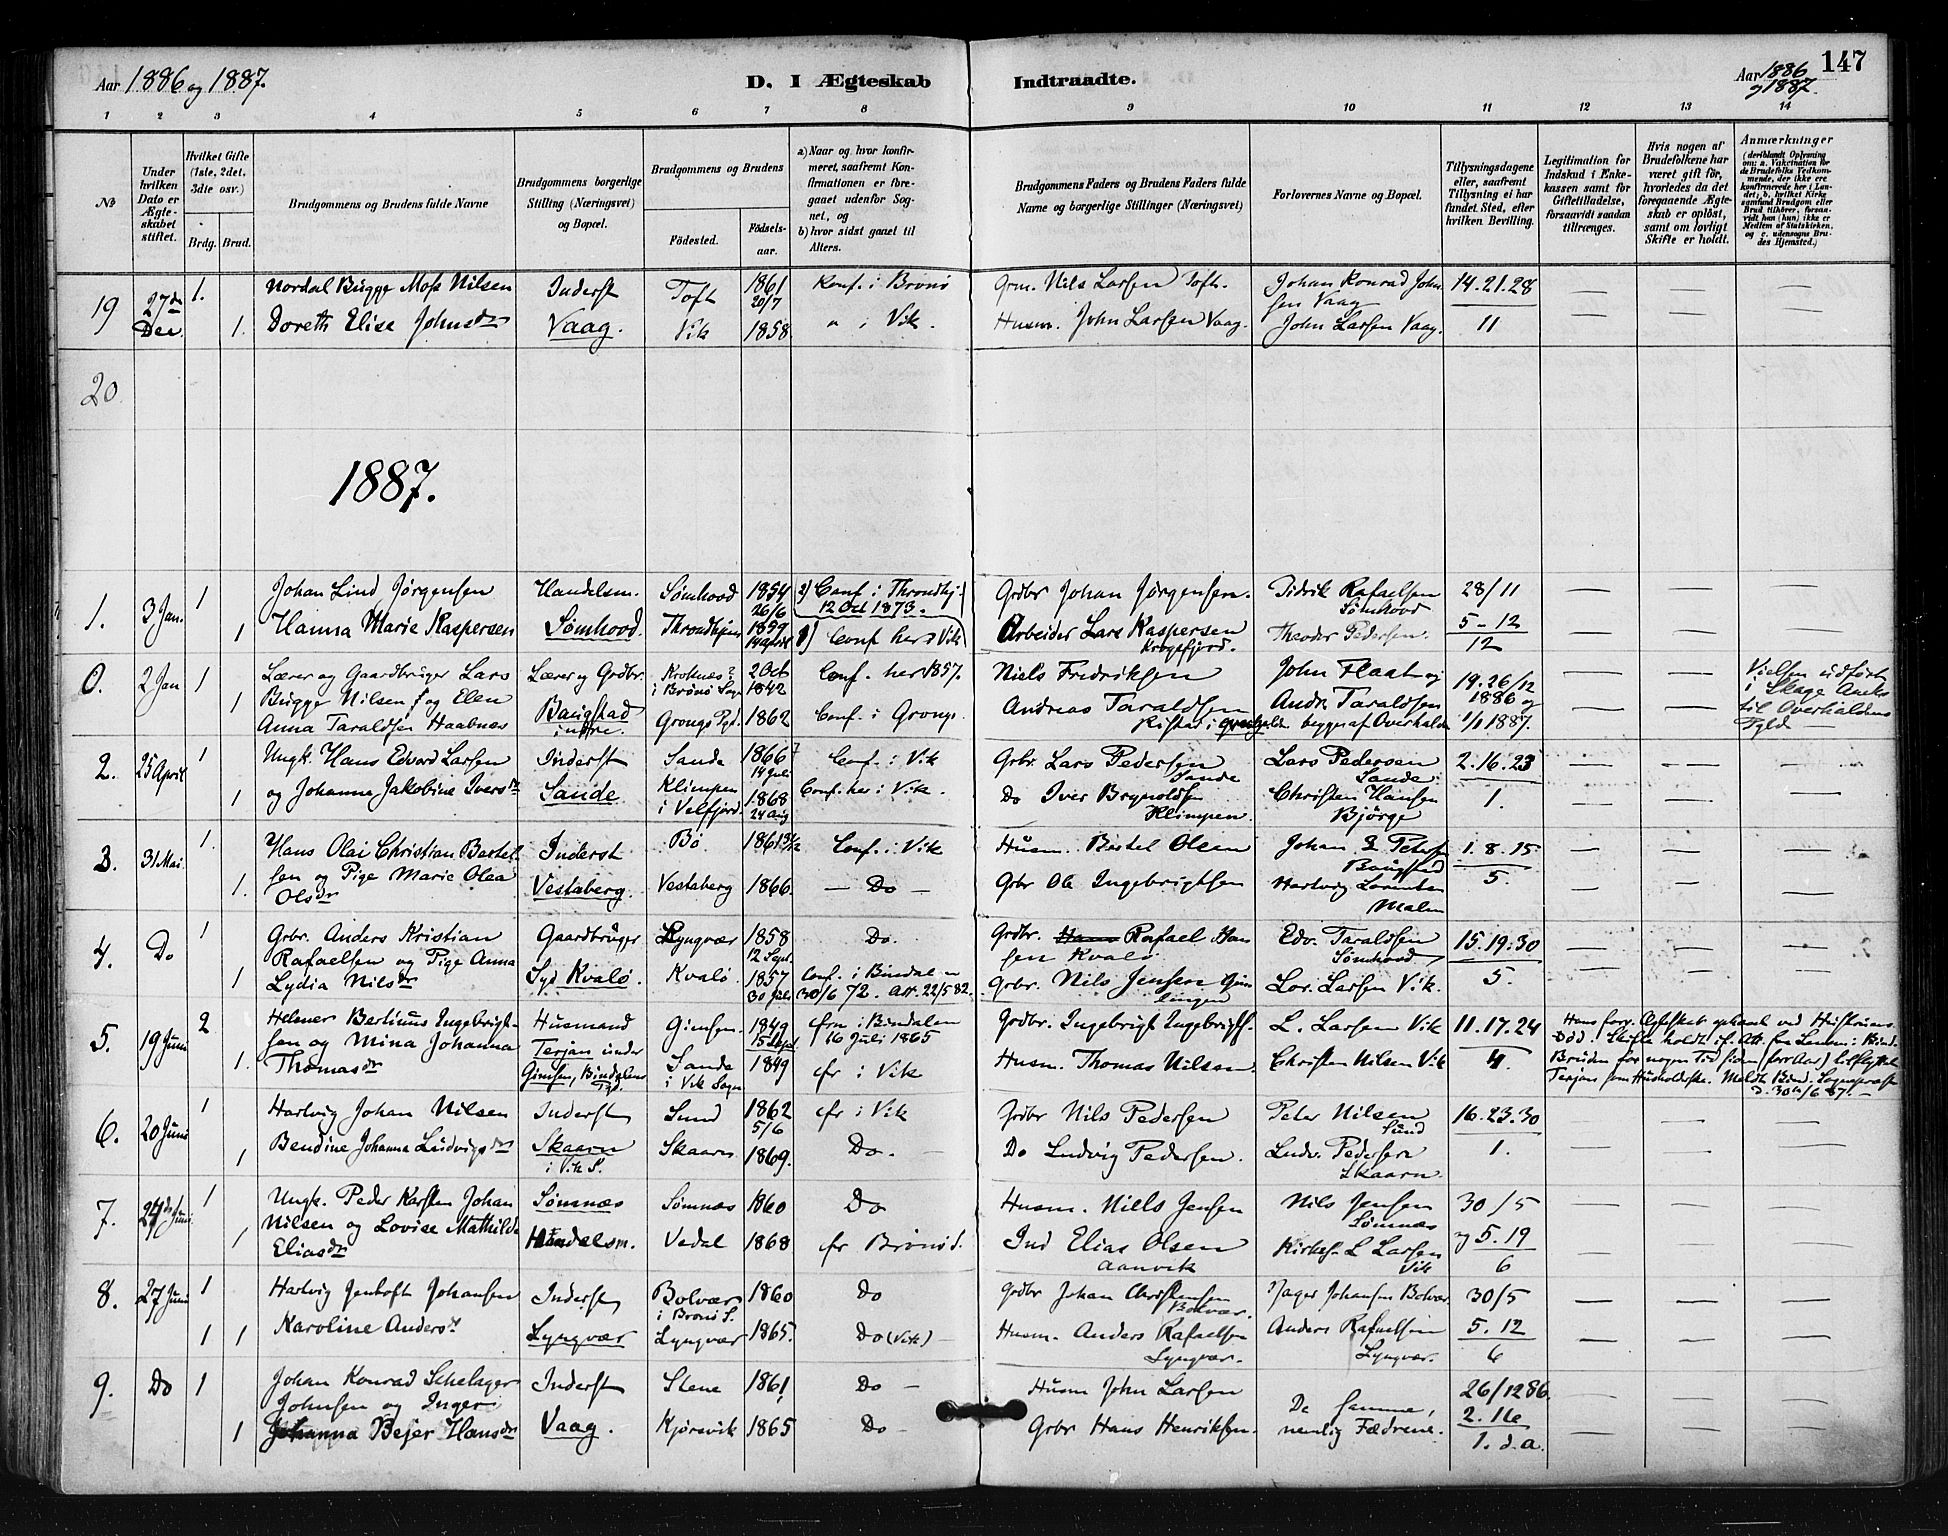 Aar 1886 og 1887.
D. I Ægteskab Indtraadte.
Aar 1886 og 1887.
147
1 2 3 4 5 6 7 8 9 10 11 12 13 14
No
Under hvilken Dato er Ægteskabet stiftet.
Hvilket Gifte (1ste, 2det, 3die osv.)
Brdg. Brud.
Brudgommens og Brudens fulde Navne
Brudgommens borgerlige Stilling (Næringsvei) og Bopæl.
Brudgommens og Brudens
Fødested. Fødselsaar.
a) Naar og hvor konfirmeret, saafremt Konfirmationen er foregaaet udenfor Sognet, og
b) hvor sidst gaaet til Alters.
Brudgommens Faders og Brudens Faders fulde Navne og borgerlige Stillinger (Næringsvei)
Forlovernes Navne og Bopæl.
Tillysningsdagene eller, saafremt Tillysning ei har fundet Sted, efter hvilken Bevilling.
Legitimation for Indskud i Enkekassen samt for Giftetilladelse, forsaavidt saadan tiltrænges.
Hvis nogen af Brudefolkene har været gift før, hvorledes da det foregaaende Ægteskab er opløst, samt om lovligt Skifte er holdt.
Anmærkninger
(deriblandt Oplysning om: a. Vaccination for de Brudefolks Vedkommende, der ikke ere konfirmerede her i Landet; b. hvilket Kirkesamfund Brudgom eller Brud tilhører, forsaavidt han (hun) ikke er Medlem af Statskirken, og c. udensogns Brudes Hjemsted.)
19 27de Dec 1. Nordal Bugge Moss Nilsen Inderst Toft 1861 20/7 Konf. i Brønø Grm. Nils Larsen Toft. Johan Konrad Johnsen Vaag 14.21.28 — — —
1. Doreth Elise Johnsdr Vaag. Vik 1858 " i Vik. Husm. John Larsen Vaag. John Larsen Vaag. 11 — — —
20
1887.
1. 3 Jan. 1 Johan Lind Jørgensen Handelsm. Sømhovd 1854 26/6 a) Conf. i Throndhj. 12 Oct 1873. Grdbr Johan Jørgensen. Didrik Rafaelsen Sømhovd 28/11 — — —
1 Hanna Marie Kaspersen Sømhovd. Throndhjem 1859 Conf her i Vik Arbeider Lars Kaspersen Theodor Pedersen. 5-12 12 — — —
0. 2 Jan 1 Lærer og Gaardbruger Lars Lærer og Grdbr. i Brønø Sogn 2 Oct 1842 Conf. her 1857. Niels Fredriksen John Flaat og 19.26/12 1886 og — —
1 Bugge Nilsen og Elen Anna Taraldsen Haabnæs Baugstad indre. Grongs Pgd. 1862 Conf. i Grongs. Andreas Taraldsen Andr. Taraldsen begge af Overhalden 1/1 1887. — —
Vielsen udført i Skage Anex til Overhaldens Pgld
2. 25 April 1 Ungk. Hans Edvard Larsen Inderst Sande 1866 14 Juli Conf. i Vik Grbr. Lars Pedersen Sande Lars Pedersen Sande 2.16.23 — — —
1 og Johanna Jakobine Iversdr Sande Klimpen i Velfjord. 1868 24 Aug Conf. her i Vik. Do Iver Brynoldsen Klimpen. Christen Hansen Bjørge 1. — — —
3. 31 Mai. 1. Hans Olai Christian Bertelsen Inderst Bø 1861 Conf. i Vik Husm. Bertel Olsen Johan Petersen Baugstad 1.8.15 — — —
1. og Pige Marie Olea Olsdr Vestaberg. Vestaberg 1866. — Do — Grbr Ole Ingebrigtsen Hartvig Lorentsen 5. — — —
4. Do 1 Grbr. Anders Kristian Rafaelsen Gaardbruger Lyngvær 1858 12 Sept. Do. Grdbr. Rafael Hansen Kvalø Edv. Taraldsen Sømhovd 15.19.30 — — —
1 og Pige Anna Lydia Nilsdr Syd Kvalø. Kvalø 1857 Conf. i Bindalen 30/6 72. Att. 22/5 82. Grbr. Nils Jensen Lor. Larsen Vik. 5. — — —
5. 19 Juni 2 Helmer Bertinus Ingebrigtsen Husmand Gimsen. 1849 15 Sept. frn i Bindalen 16 Juli 1865 Grdbr. Ingebrigt Ingebrigts. L. Larsen Vik 11.17.24
1. og Mina Johanna Thomasdr Terjan under Gimsen, Bindalens Sande i Vik Sogn 1849 fr i Vik Husm. Thomas Nilsen Christen Nilsen Vik 4.
Hans forr. Ægteskab ophævet ved Hustruens Død. Skifte holdt
6. 20 Juni 1 Hartvig Johan Nilsen Inderst Sund 1862 5/6 fr i Vik Grdbr Nils Pedersen Peter Nilsen Sund 16.23.30 — — —
1 Bendine Johanna Ludvigsdr Skaarn i Vik S. Skaarn 1869. Do. — Do Ludvig Pedersen. Ludv. Pedersen Skaarn 1. — — —
7. 24de Juni 1 Ungk. Peder Karsten Johan Nilsen Sømnæs Sømnæs 1860 Do Husm. Niels Jensen Nils Jensen Sømnæs 30/5 — — —
1 og Lovise Mathilde Eliasdr Handelsm. Vedal 1868 fr Brønø S. Ind Elias Olsen Aanvik Kirkes. L Larsen Vik og 5.19 6 — — —
8. 27 Juni 1 Hartvig Jentoft Johansen Inderst Bolvær i Brønø S. 1860 Do Grdbr Johan Christensen Bolvær. Johansen Bolvær 30/5 — — —
1 1 Karoline Andersdr Lyngvær Lyngvær 1865. Do (Vik) — Husm. Anders Rafaelsen Lyngvær. Anders Rafaelsen Lyngvær. 5.12 6 — — —
9. Do 1 Johan Konrad Schelager Johnsen Inderst Stene 1861 Do — Husm John Larsen De samme, 26/12 86. — — —
1 og Inger Johanna Bejer Hansdr Vaag. Kjørsvik 1865 Do — Grbr Hans Henriksen. nemlig Fædrene. 2.16 1. d.a. — — —